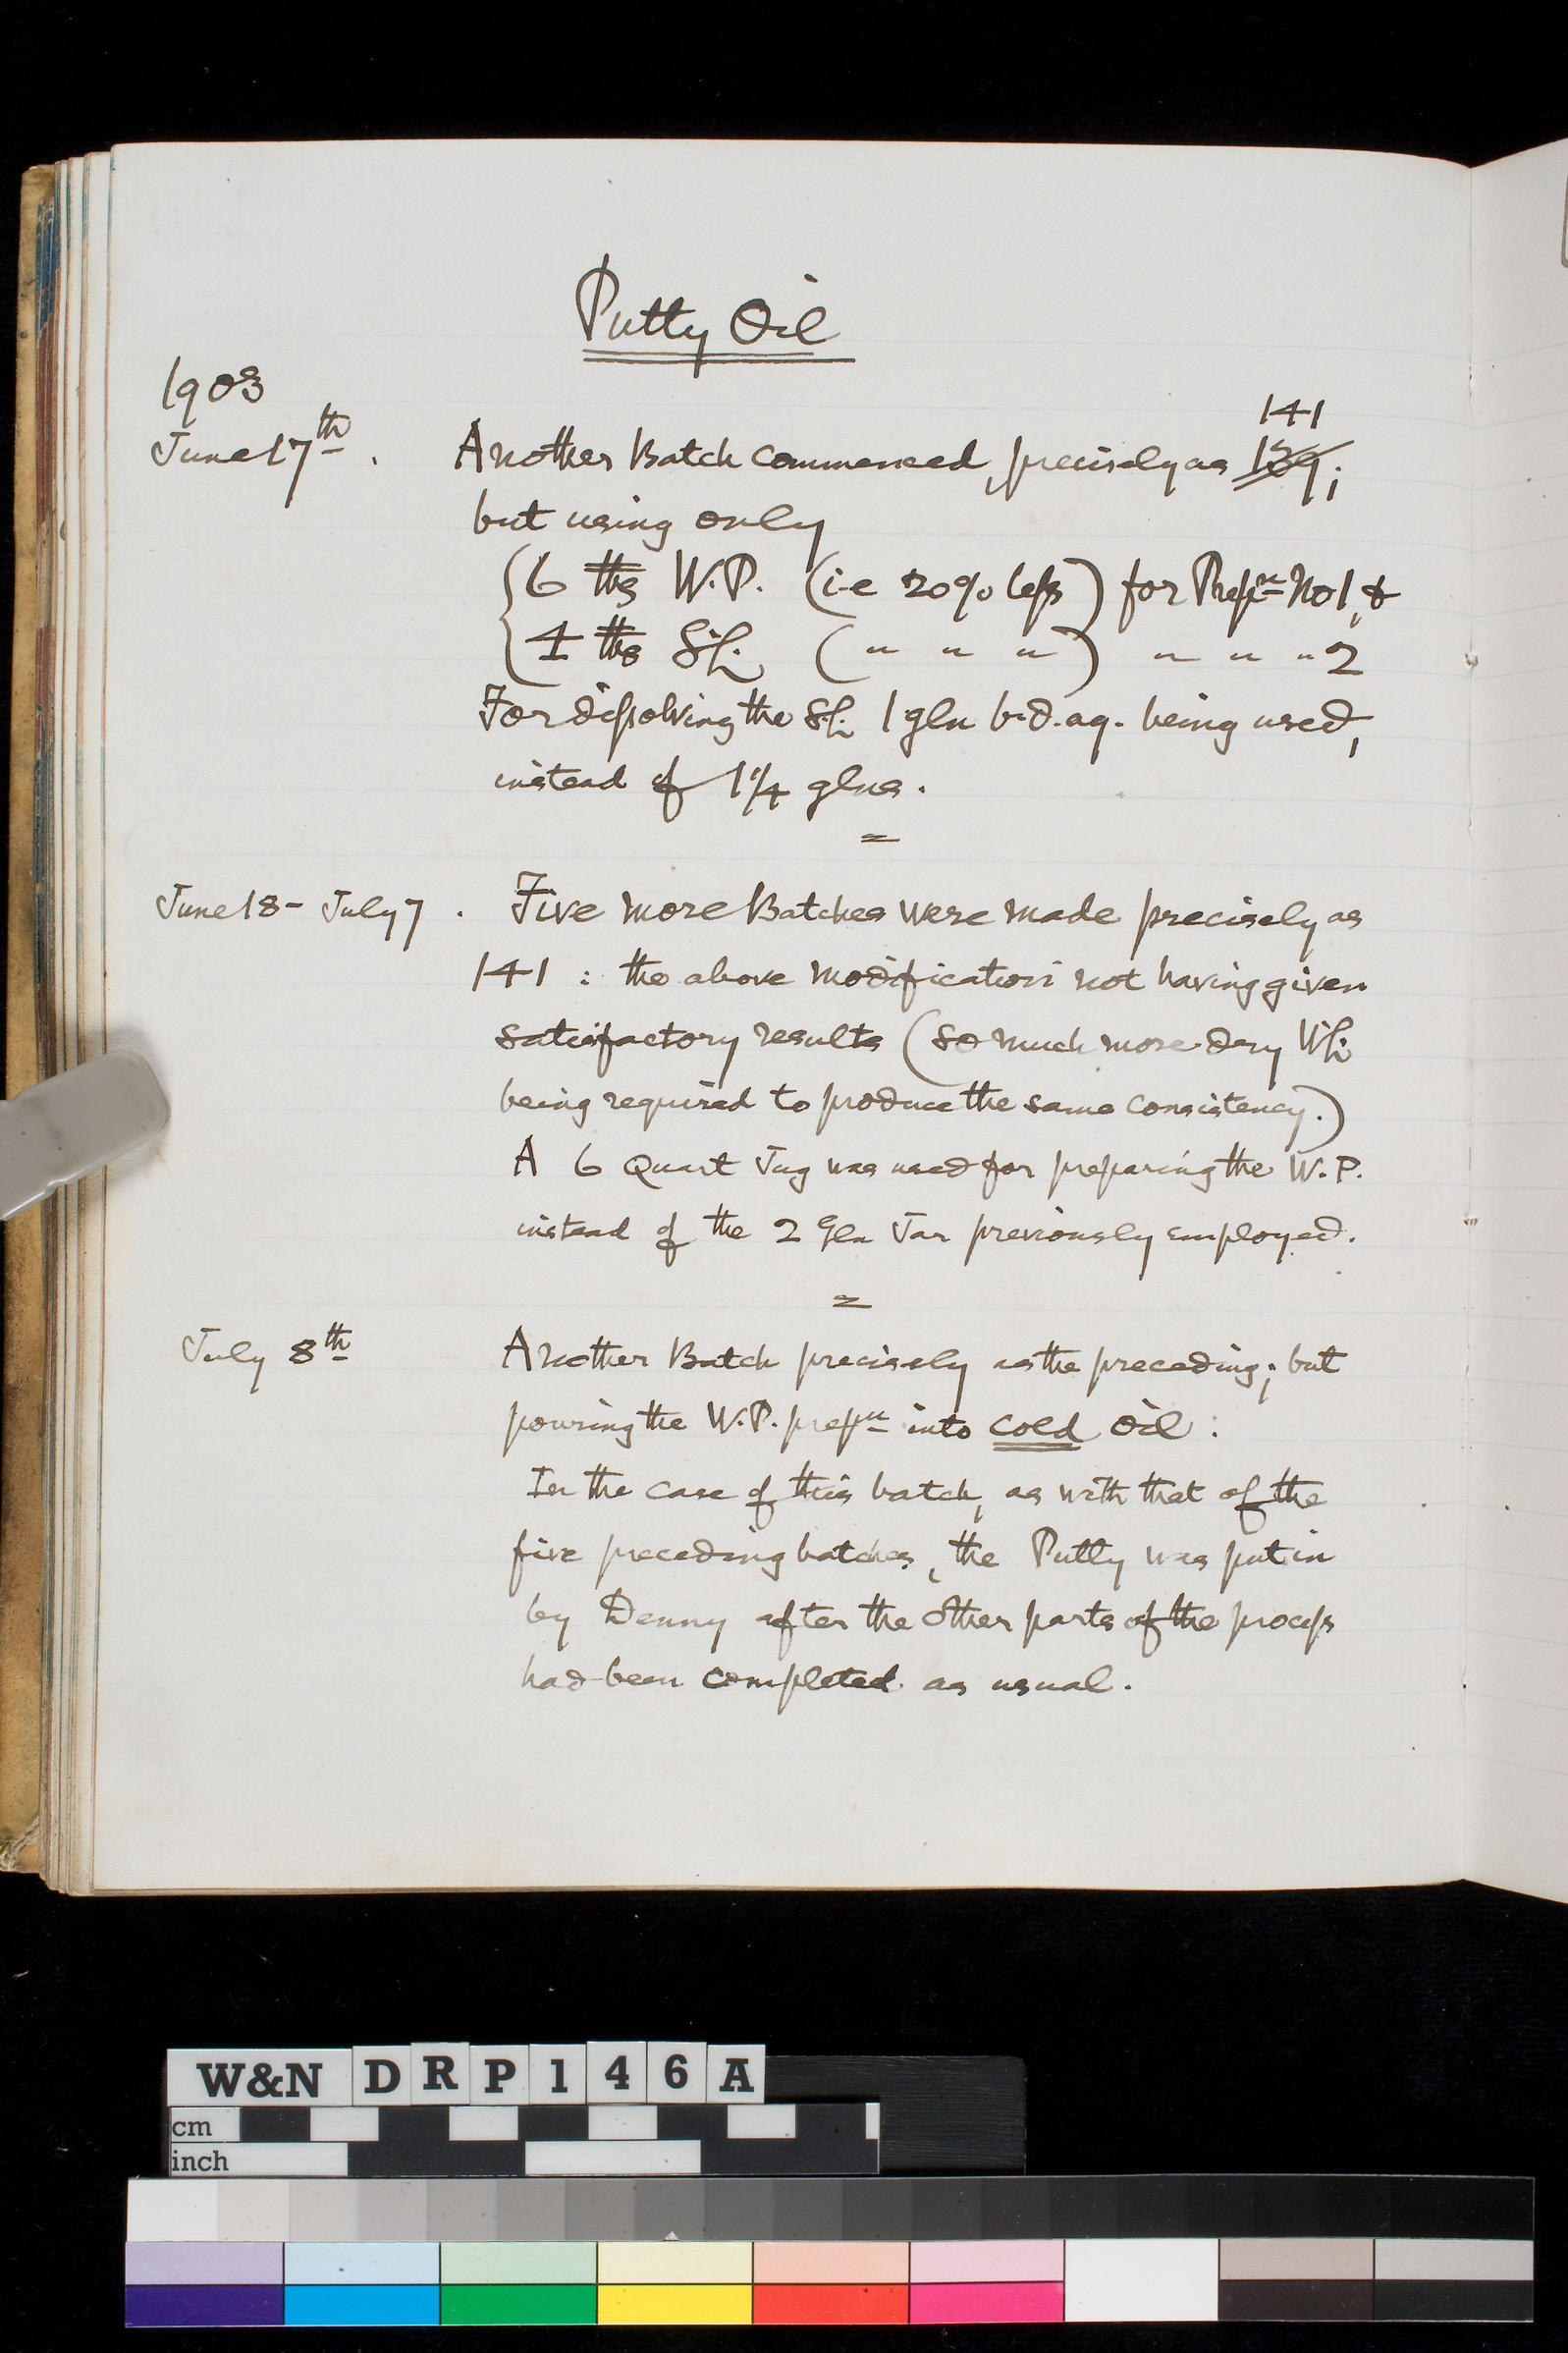 Putty Oil
1903
141
June 17th. Another Batch commenced, precisely as 139;
but using only
6 lbs W.P. (i-e 20% less) for Prepn No 1, &
4 lbs S/L (" " ") " " " 2
For dissolving the S/L 1 gln b.d.aq. being used,
instead of 1 1/4 glns.
=
June 18 - July 7. Five more Batches were made precisely as
141 : the above modification not having given
satisfactory results (so much more dry W/L
being required to produce the same consistency.)
A 6 Quart Jug was used for preparing the W.P.
instead of the 2 Gln Jar previously employed.
=
July 8th Another Batch precisely as the preceding; but
pouring the W.P. prepn into cold oil :
In the case of this batch, as with that of the
five preceding batches, the Putty was put in
by Denny after the other parts of the process
had been completed as usual.
W&N DRP146A
cm
inch